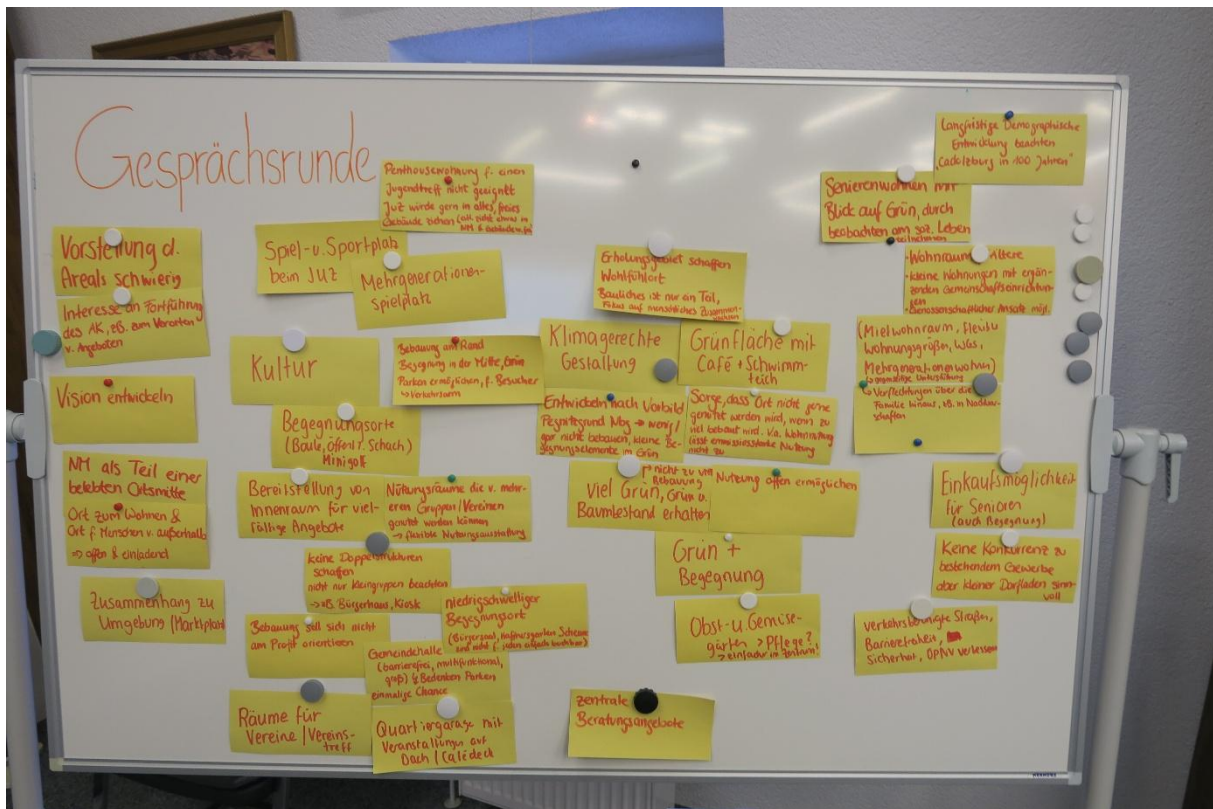 Gesprächsrunde
Vorstellung d.
Areals schwierig
Interesse an Fortführung
des AK, zB. zum Verorten
v. Angeboten
Vision entwickeln
NM als Teil einer
belebten Ortsmitte
Ort zum Wohnen &
Ort f. Menschen v. außerhalb
⇒ offen & einladend
Zusammenhang zu
Umgebung/Marktplatz
Penthousewohnung f. einen
Jugendtreff nicht geeignet
JuZ würde gern in altes, freies
Gebäude ziehen
NM & Gebäude
Spiel- u. Sportplatz
beim JUZ
Mehrgenerationen-
spielplatz
Kultur
Bebauung am Rand
Begegnung in der Mitte, Grün
Parken ermöglichen, f. Besucher
↳ Verkehrsarm
Begegnungsorte
(Boule, öffentl. Schach)
Minigolf
Bereitstellung von
Innenraum für viel-
fältige Angebote
Nutzungsräume die v. mehr-
eren Gruppen/Vereinen
genutzt werden können
→ flexible Nutzungsausstattung
keine Doppelstrukturen
schaffen
nicht nur Kleingruppen beachten
→ zB. Bürgerhaus, Kiosk
Bebauung soll sich nicht
am Profit orientieren
niedrigschwelliger
Begegnungsort
(Bürgersaal, Haffnersgarten Scheune
sind nicht f. jeden einfach buchbar)
Gemeindehalle
(barrierefrei, multifunktional,
groß) Bedenken Parken
einmalige Chance
Räume für
Vereine/Vereins-
treff
Quartiergarage mit
Veranstaltungen auf
Dach/Cafédeck
Erholungsgebiet schaffen
Wohlfühlort
Bauliches ist nur ein Teil,
Fokus auf menschliches Zusammen-
Klimagerechte
Gestaltung
Grünfläche mit
Café + Schwimm-
teich
Entwickeln nach Vorbild
Pegnitzgrund Nbg → wenig/
gar nicht bebauen, kleine Be-
gegnungselemente im Grün
Sorge, dass Ort nicht gerne
genutzt werden wird, wenn zu
viel bebaut wird. v.a. Wohnnutzung
lässt emissionsstarke Nutzung
nicht zu
nicht zu viel
Bebauung
viel Grün, Grün u.
Baumbestand erhalten
Nutzung offen ermöglichen
Grün +
Begegnung
Obst- u Gemüse-
gärten → Pflege?
→ einfadur im Zentrum!
zentrale
Beratungsangebote
Langfristige Demographische
Entwicklung beachten
"Cadolzburg in 100 Jahren"
Senierenwohnen mit
Blick auf Grün, durch
beobachten am soz. Leben
teilnehmen
· Wohnraum Ältere
· kleine Wohnungen mit ergän-
zenden Gemeinschaftseinrichtun-
gen
· Genossenschaftlicher Ansatz mögl.
(Mietwohnraum, flexible
Wohnungsgrößen, WGs,
Mehrgenerationenwohnen)
↳ gegenseitige Unterstützung
↳ Verflechtungen über die
Familie hinaus, zB. in Nachbar-
schaften
Einkaufsmöglichkeit
für Senioren
(auch Begegnung)
Keine Konkurrenz zu
bestehendem Gewerbe
aber kleiner Dorfladen sinn-
voll
Verkehrsberuhigte Straßen,
Barrierefreiheit,
Sicherheit, ÖPNV verbessern